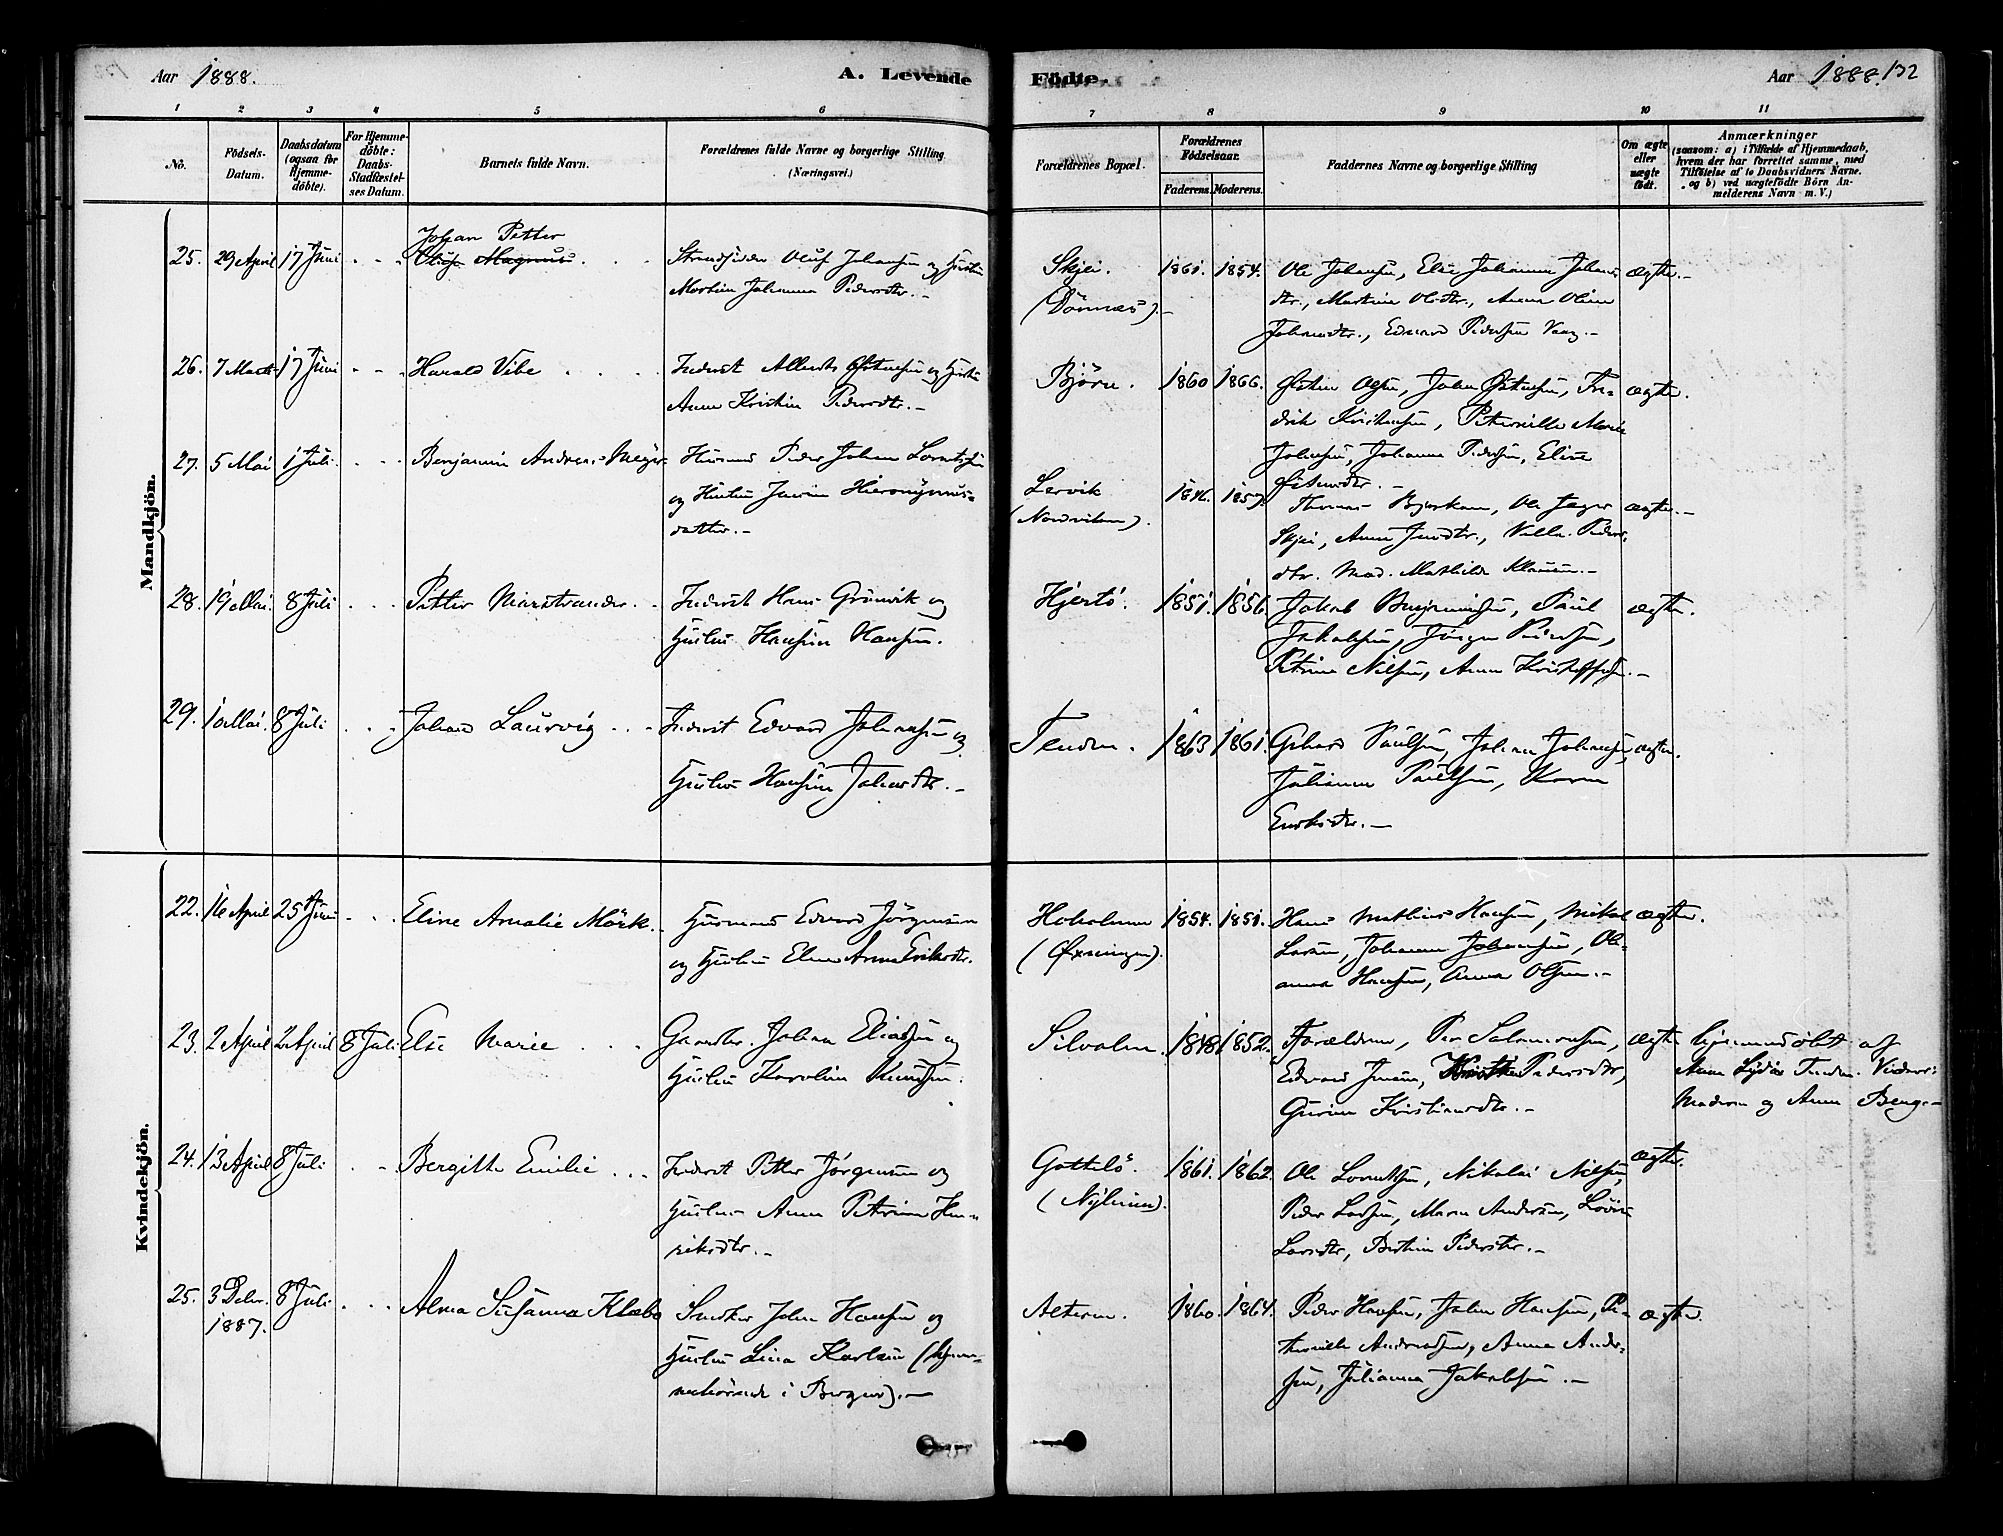 Aar 1888.
A. Levende
Födte.
Aar 1888. 132
1 2 3 4 5 6 7 8 9 10 11
No.
Födsels-
Datum.
Daabsdatum
(ogsaa for
Hjemme-
döbte).
For Hjemme-
döbte:
Daabs-
Stadfæstel-
ses Datum.
Barnets fulde Navn.
Forældrenes fulde Navne og borgerlige Stilling
(Næringsvei.)
Forældrenes Bopæl.
Forældrenes
Födselsaar.
Faderens. Moderens.
Faddernes Navne og borgerlige Stilling
Om ægte
eller
uægte
födt.
Anmærkninger
(saasom: a) i Tilfælde af Hjemmedaab,
hvem der har forrettet samme, med
Tilföielse af to Daabsvidners Navne.
og b) ved uægtefödte Börn An-
melderens Navn m. V.)
Mandkjön.
Johan Petter
25. 29 April 17 Juni Magnus
Oluf Johansen og Hustru
Johanna Pedersdtr. -
Skjei. 1861. 1854. Ole Johansen, Else Johanna Johans-
(Dönnæs). -
dtr., Martina Olsdtr., Anna Olina
Johansdtr., Edvard Pedersen Vaag. -
ægte. -
26. 7 Marts 17 Juni Harald Vibe
Inderst Østensen og Hustru
Anna Kristine Pedersdtr. -
Björn. 1860 1866. Østen Olsen, Johan Østensen, Fre-
drik Kristensen, Peternille Marie
Johansen, Johanna Pedersen, Elise
Østensdtr. -
ægte.
27. 5 Mai 1 Juli. Benjamin Andreas Meyer
Husmand Peder Johan Lorntsen
og Hustru Hieronymus-
datter. -
Lervik 1857. Thomas Ole Jager
Skjei, Anna dtr., Peders-
dtr. Mad. Mathilde -
ægte. -
28. 19 Mai. 8 Juli Petter Marstrander.
Inderst Hans Grönvik og
Hustru Hansine Hansen.
Hjertö. 1851. 1856 Jakob Benjaminsen, Paul
Jakobsen, Jörgen
Petrine Nilsen, Anna Kristoffersen. -
ægte.
29. Mai. 8 Juli Johan Laurvig
Inderst Edvard Johansen og
Hustru Hansine Johansdtr. -
Tenden. 1863 1861. Gerhard Paulsen, Johan Johansen,
Juliana Paulsen, Karen
dtr. -
ægte.
Kvindekjön.
22. 16 April 25 Juni Eline Amalie Mörk.
Husmand Edvard Jörgensen
og Hustru Elen Anna Eriksdtr.
Hokolmen 1854. 1851. Hans Mathias Hansen, Mikal
(Øxningen).
Larsen, Johanna Johansen, Ol-
anna Hansen, Anna Olsen. -
ægte.
23. 2 April 2 April 8 Juli Else Marie
Gaardbr. Johan Eliassen og
Hustru Karoline Knudsen.
Silvalen. 1848 1852. Forældrene, Per Salamonsen,
Edvard Jensen, Pedersdtr,
Gurine Kristiansdtr. -
ægte Hjemmedöbt af
Anna Lydia Tenden. Vidner:
Moderen og Anna Berg. -
24. 13 April 8 Juli Bergitte Emilie
Inderst Petter Jörgensen og
Hustru Anna Petrine Hen-
riksdtr. -
1861. 1862. Ole Lorntsen, Nikolai Nilsen,
Peder Larsen, Maren Andersen,
Larsdtr, Pedersdtr. -
ægte.
25. 3 Debr. 8 Juli Alma Susanna Klæbo
1887.
Snedker Johan Hansen og
Hustru Lina Karlsen (hjem-
mehörende i Bergen). -
Alteren. 1860. 1864. Peder Hansen, Johan Hansen, Pe-
ternille Andreassen, Anna Ander-
sen, Julianna Jakobsen. -
ægte.